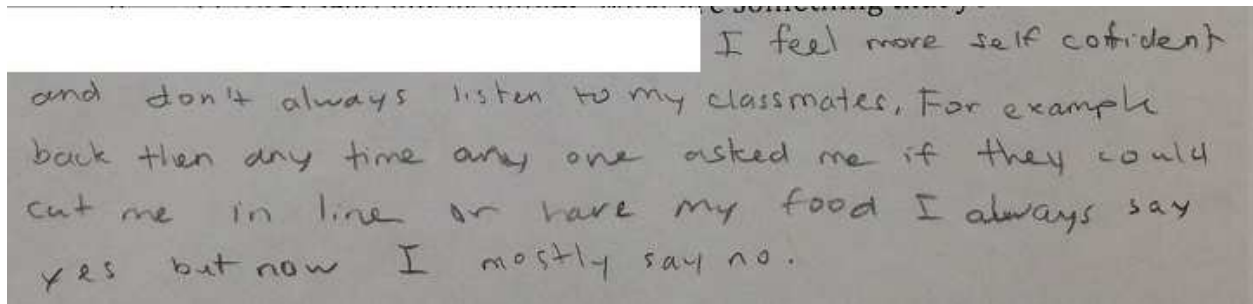 something that y
I feel more self cofident
and don't always listen to my classmates. For example
back then any time any one asked me if they could
cut me in line or have my food I always say
yes but now I mostly say no.